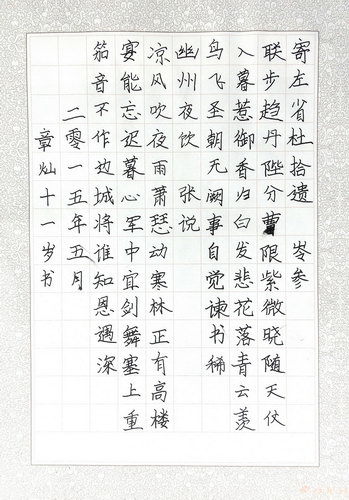 寄左省杜拾遗 岑参
联步趋丹陛分曹限紫微晓随天仗
入暮惹御香归白发悲花落青云羡
鸟飞圣朝无阙事自觉谏书稀
幽州夜饮 张说
凉风吹夜雨萧瑟动寒林正有高楼
宴能忘迟暮心军中宜剑舞塞上重
笳音不作边城将谁知恩遇深
二零一五年五月
章灿十一岁书